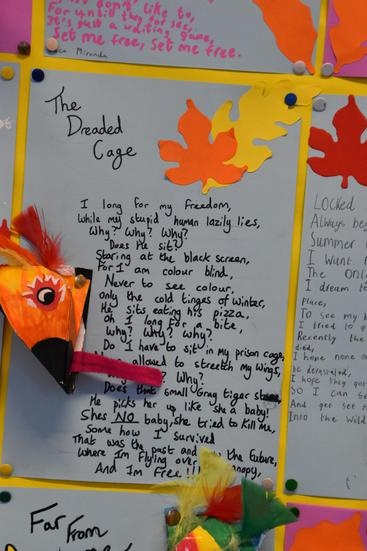 don't like to,
For until they for sea,
It's just a waiting game,
Set me free, Set me free.
Miranda
The
Dreaded
Cage
I long for my freedom,
While my stupid human lazily lies,
Why? Why? Why?
Does He sit?
Staring at the black screen,
For I am colour blind,
Never to see colour,
only the cold tinges of winter,
He sits eating his pizza,
oh I long for a bite,
Why? Why? Why?
Do I have to sit in my prison cage,
allowed to stretch my wings,
? Why?
Does that small Gray tiger
He picks her up like she a baby!
Shes NO baby, she tried to kill me,
Some how I survived
That was the past and the future,
Where Im flying over
And Im Free!!!
Locked
Always
Summer
I want
The
I dream
Place,
To see my
I tried to
Recently the
died,
I hope none
be devastated,
I hope they
So I can
And get
Into the Wild
Far From